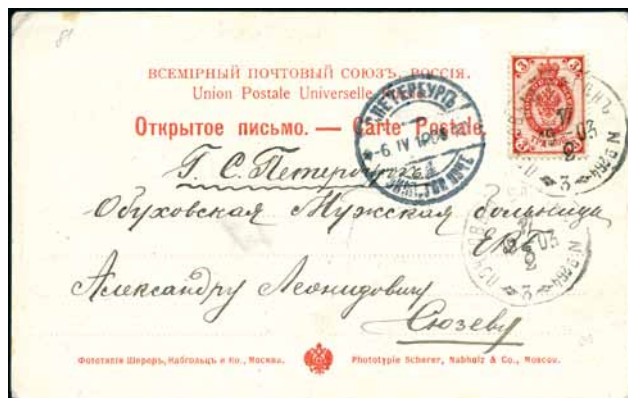 ВСЕМІРНЫЙ ПОЧТОВЫЙ СОЮЗЪ, РОССІЯ.
Union Postale Universelle
Открытое письмо. — Carte Postale.
Г. С. Петербургъ
Обуховская Мужская больница
ЕВБ
Александру Леонидовичу
Сюзеву
Фототипія Шереръ, Набгольцъ и Ко., Москва.
Phototypie Scherer, Nabholz & Co., Moscou.
3 3
С.ПЕТЕРБУРГЪ
6 IV 1903
3
3